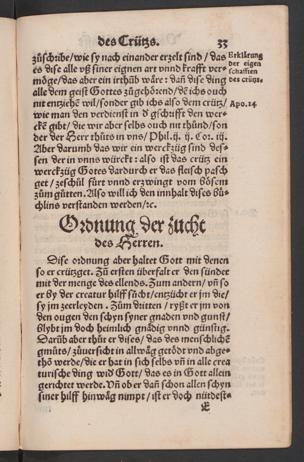 des Crützs. 33
zůschribe/wie sy nach einander erzelt sind/das
es dise alle vß siner eignen art vnnd krafft ver-
möge/das aber ein irthůb wäre: dañ dise ding
alle dem geist Gottes zůgehörend/dẽ ichs ouch
nit entziehẽ wil/sonder gib ichs also dem crütz/
wie man den verdienst in d gschrifft den wer-
ckẽ gibt/die wir aber selbs ouch nit thůnd/son
der der Herr thůts in vns/Phil. ij. ij. Cor. iij.
Aber darumb das wir ein werckzüg sind des-
sen der in vnns würckt: also ist das crütz ein
werckzüg Gottes dardurch er das fleisch pasch
get/zeschül fürt vnd erzwingt vom bösem
zům gůtten. Also will ich den innhalt dises bů-
chlins verstanden werden/rc.
Erklärung
der eigen
schafften
des crütz.
Apo.14
Ordnung der zucht
des Herren.
Dise ordnung aber haltet Gott mit denen
so er crützget. Zů ersten überfalt er den sünder
mit der menge des ellends. Zum andern/vñ so
er by der creatur hilff sůcht/entzücht er jm die/
sy jm zerrleyden. Zům dritten/ryßt er jm von
den ougen den schyn syner gnaden vnd gunst/
blybt jm doch heimlich gnädig vnnd günstig.
Darüb aber thůt er dises/das des menschlichẽ
gmüts/zůuersicht in allwäg getödt vnd abge-
thõ werde/die er hat in sich selbs vñ in alle crea
turische ding wid Gott/das es in Gott allein
gerichtet werde. Vñ ob er dañ schon allen schyn
siner hilff hinwäg nimpt/ist er doch nütdest-
E